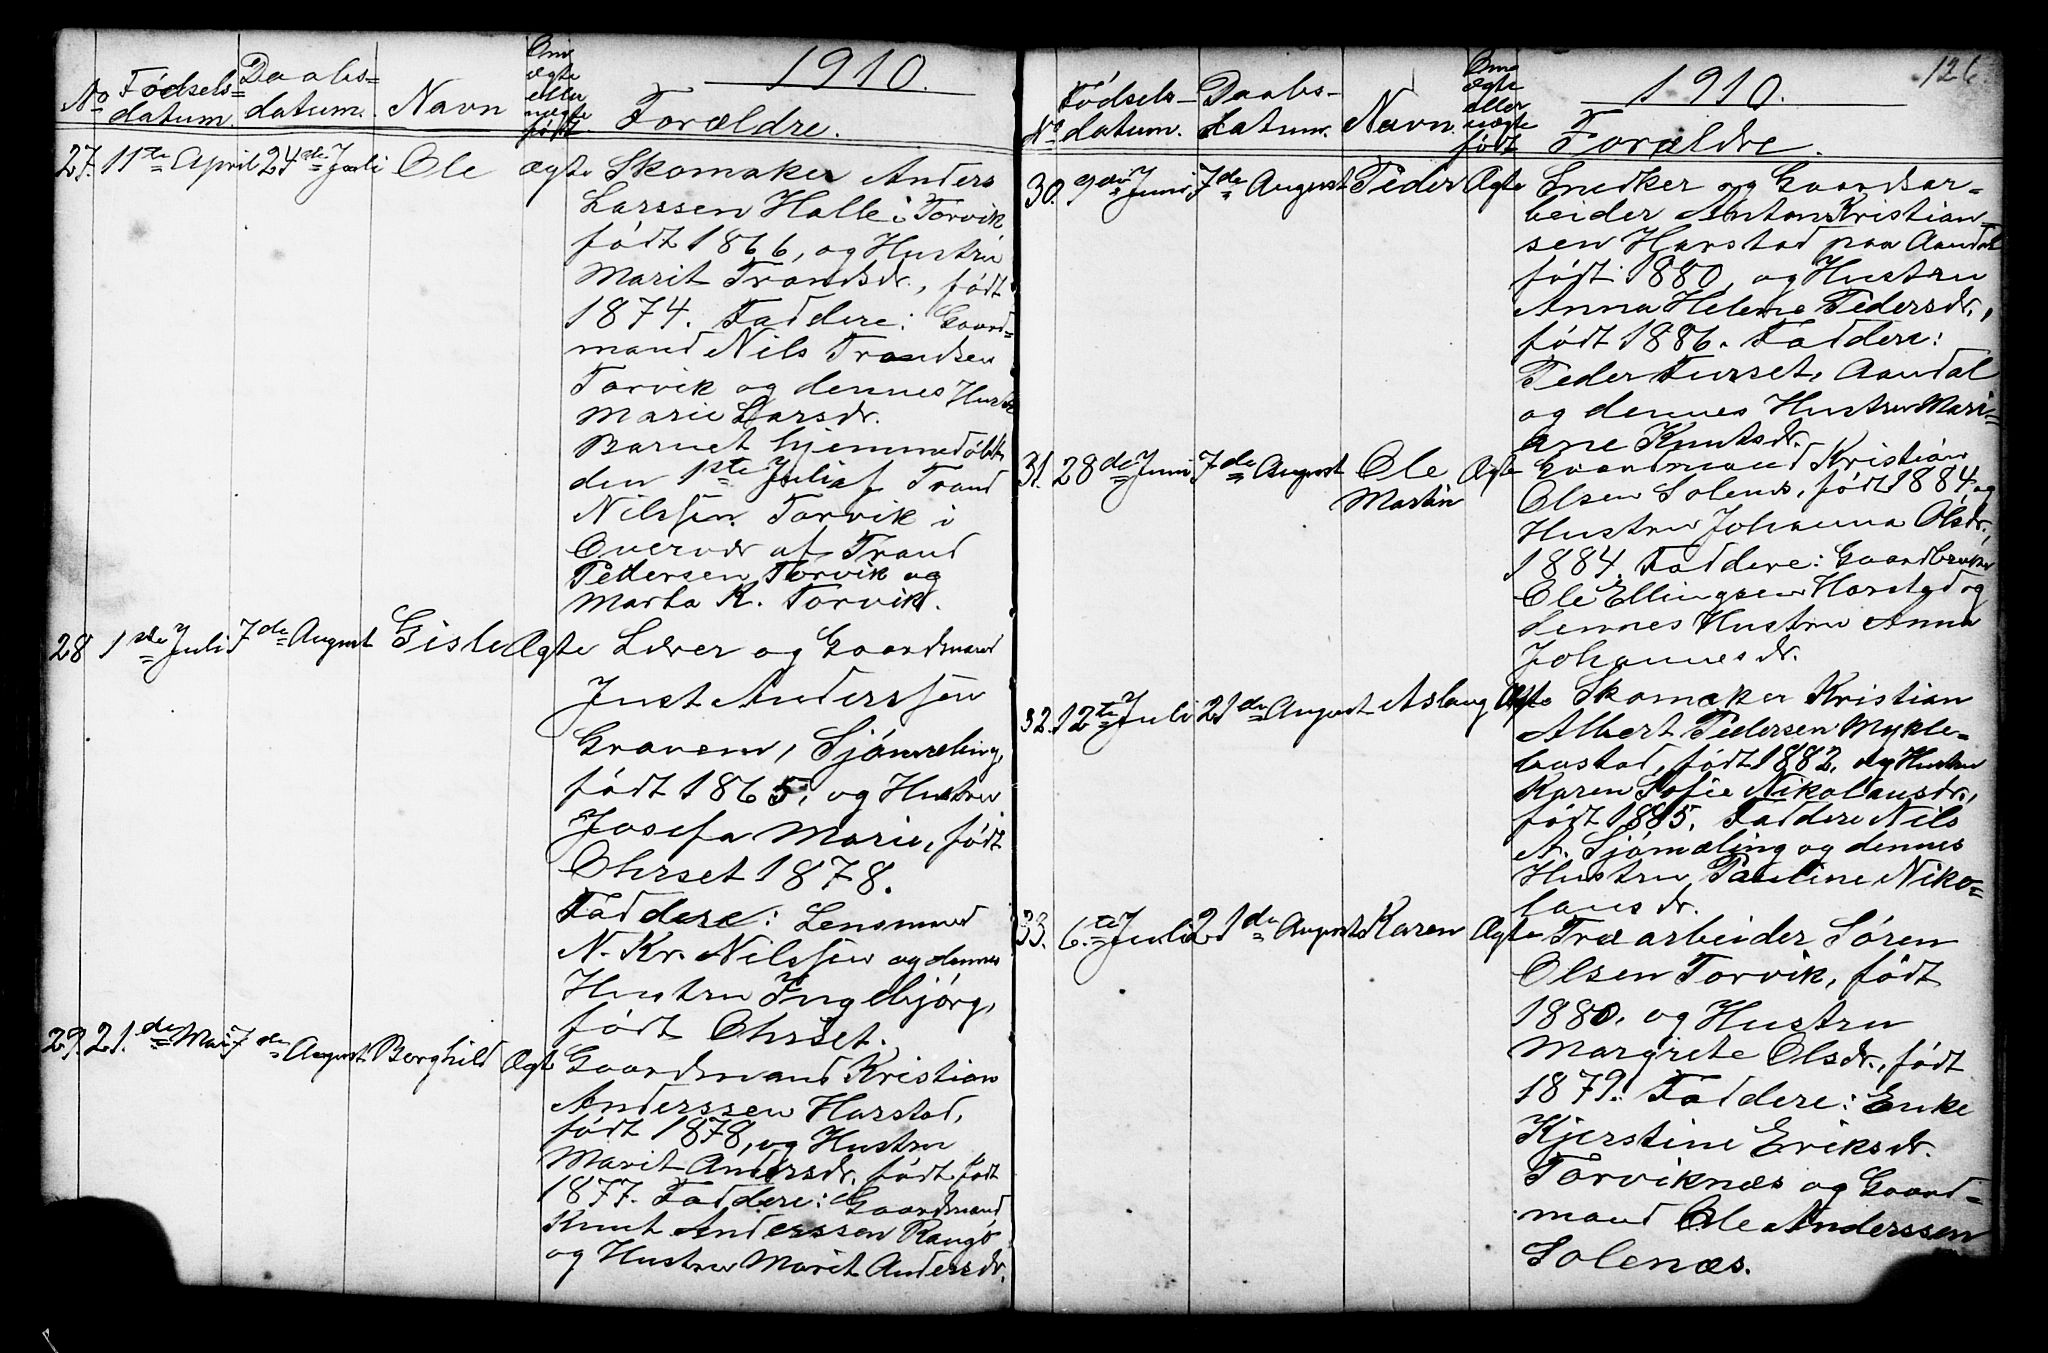 1910.
No
Fødsels=
datum.
Daabs=
datum.
Navn
Om
ægte
eller
uægte
født.
Forældre.
27. 11te April 24de Juli Ole ægte Skomaker Anders
Larssen Halle i Torvik
født 1866, og Hustru
Marit Trondsdr., født
1874. Faddere: Gaard=
mand Nils Trondsen
Torvik og dennes Hustr
Marie Larsdr.
Barnet hjemmedøbt
den 1ste Juli af Trond
Nilssen Torvik i
Overvær af Trond
Pettersen Torvik og
Marta K. Torvik.
28 1ste Juli 7de August Gisle Ægte Lærer og Gaardmand
Just Anderssen
Gravem, Sjømæling,
født 1865, og Hustru
Josefa Marie, født
Ohrset 1878.
Faddere: Lensmand
N. Kr. Nilssen og dennes
Hustru Ingebjørg,
født Ohrset.
29. 21.de Mai 7de August Borghild Ægte Gaardmand Kristian
Anderssen Harstad,
født 1878, og Hustru
Marit Andersdr. født født
1877. Faddere: Gaardmand
Knut Anderssen Rangø
og Hustru Marit Andersdr.
126
1910.
No
Fødsels-
datum.
Daabs-
datum.
Navn.
Om
ægte
eller
uægte
født
Forældre.
30. 9de Juni 7de August Peder Ægte Snedker og Gaardsar=
beider Anton Kristian=
sen Harstad paa Aandal
født 1880, og Hustru
Anna Helene Pedersdr.,
født 1886. Faddere:
Peder Furset, Aandal
og dennes Hustru Mari=
ane Knutsdr.
31. 28de Juni 7de August Ole Ægte Gaardmand Kristian
Martin
Olsen Solenæs, født 1884, og
Hustru Johanna Olsdr.,
1884. Faddere: Gaardbruker
Ole Ellingsen Harstad og
dennes Hustru Anna
Johannesdr.
32. 12te Juli 21de August Aslaug Ægte Skomaker Kristian
Albert Pedersen Mykle=
bostad, født 1882, og Hustru
Karen Sofie Nikolausdr.,
født 1885. Faddere Nils
A. Sjømæling og dennes
Hustru Pauline Niko=
lausdr.
33. 6.te Juli 21de August Karen Ægte Træarbeider Søren
Olsen Torvik, født
1880. og Hustru
Margrete Olsdr., født
1879. Faddere: Enke
Kjerstine Eriksdr.
Torviknæs og Gaard=
mand Ole Anderssen
Solenæs.